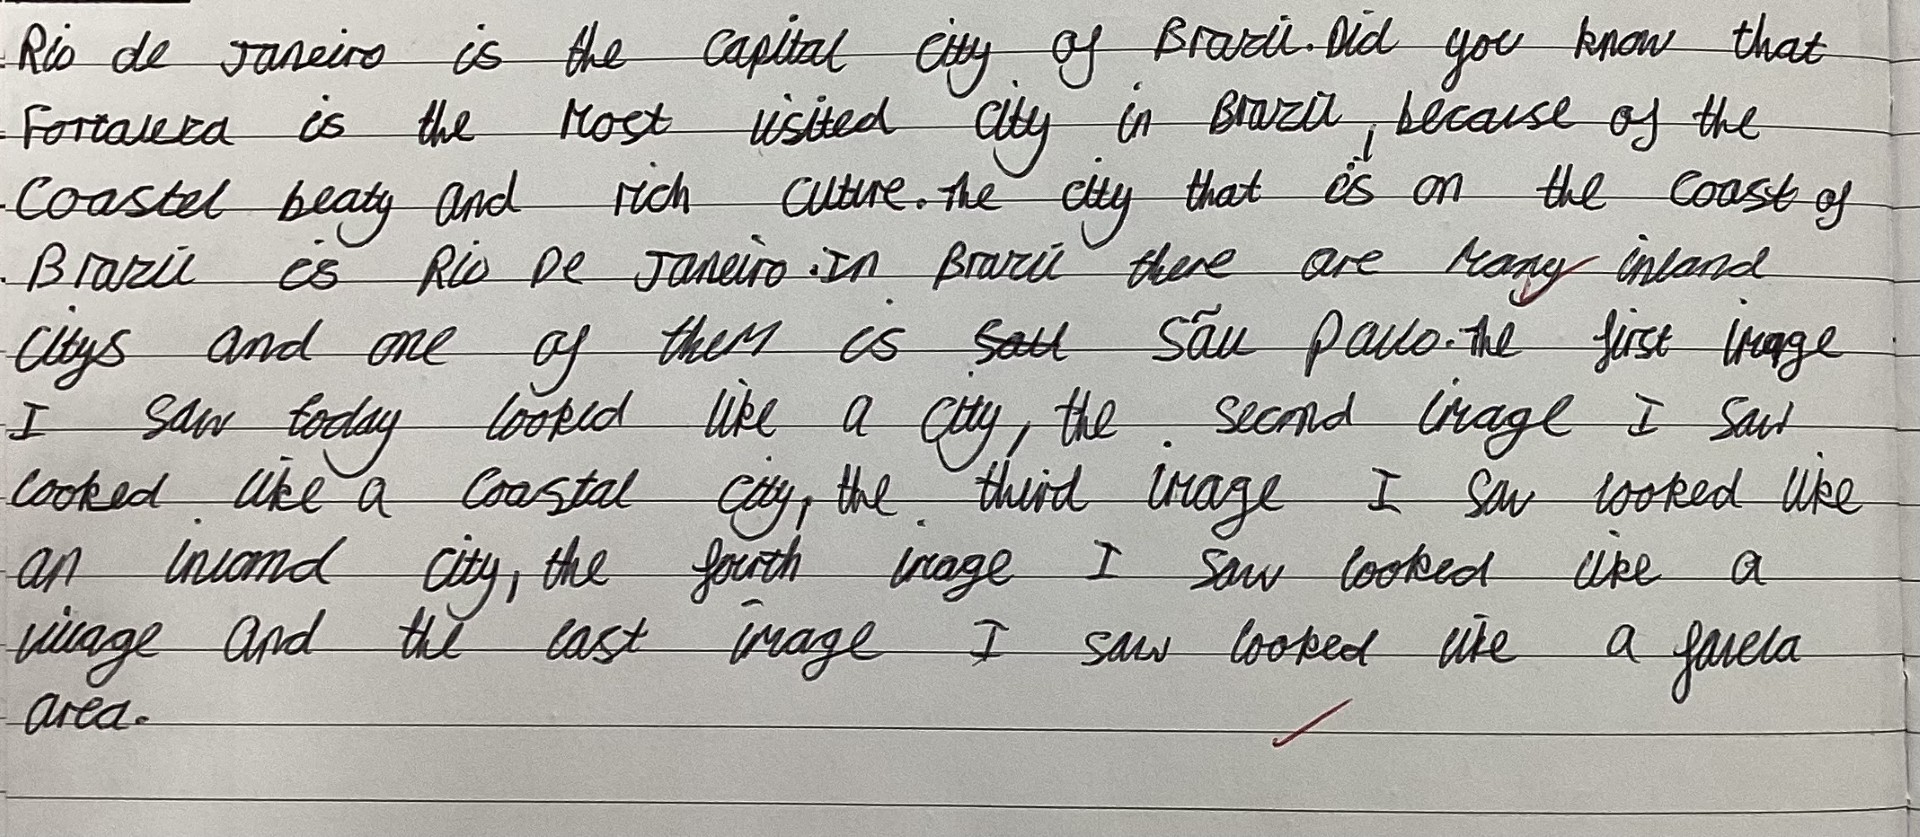 Rio de Janeiro is the capital city of Brazil. Did you know that
Fortaleza is the most visited city in Brazil, because of the
Coastel beaty and rich culture. The city that is on the coast of
Brazil is Rio De Janeiro. In Brazil there are many inland
citys and one of them is Sau São Paulo. The first image
I saw today looked like a city, the second image I saw
looked like a coastal city, the third image I saw looked like
an inland city, the fourth image I saw looked like a
village and the last image I saw looked like a favela
area.